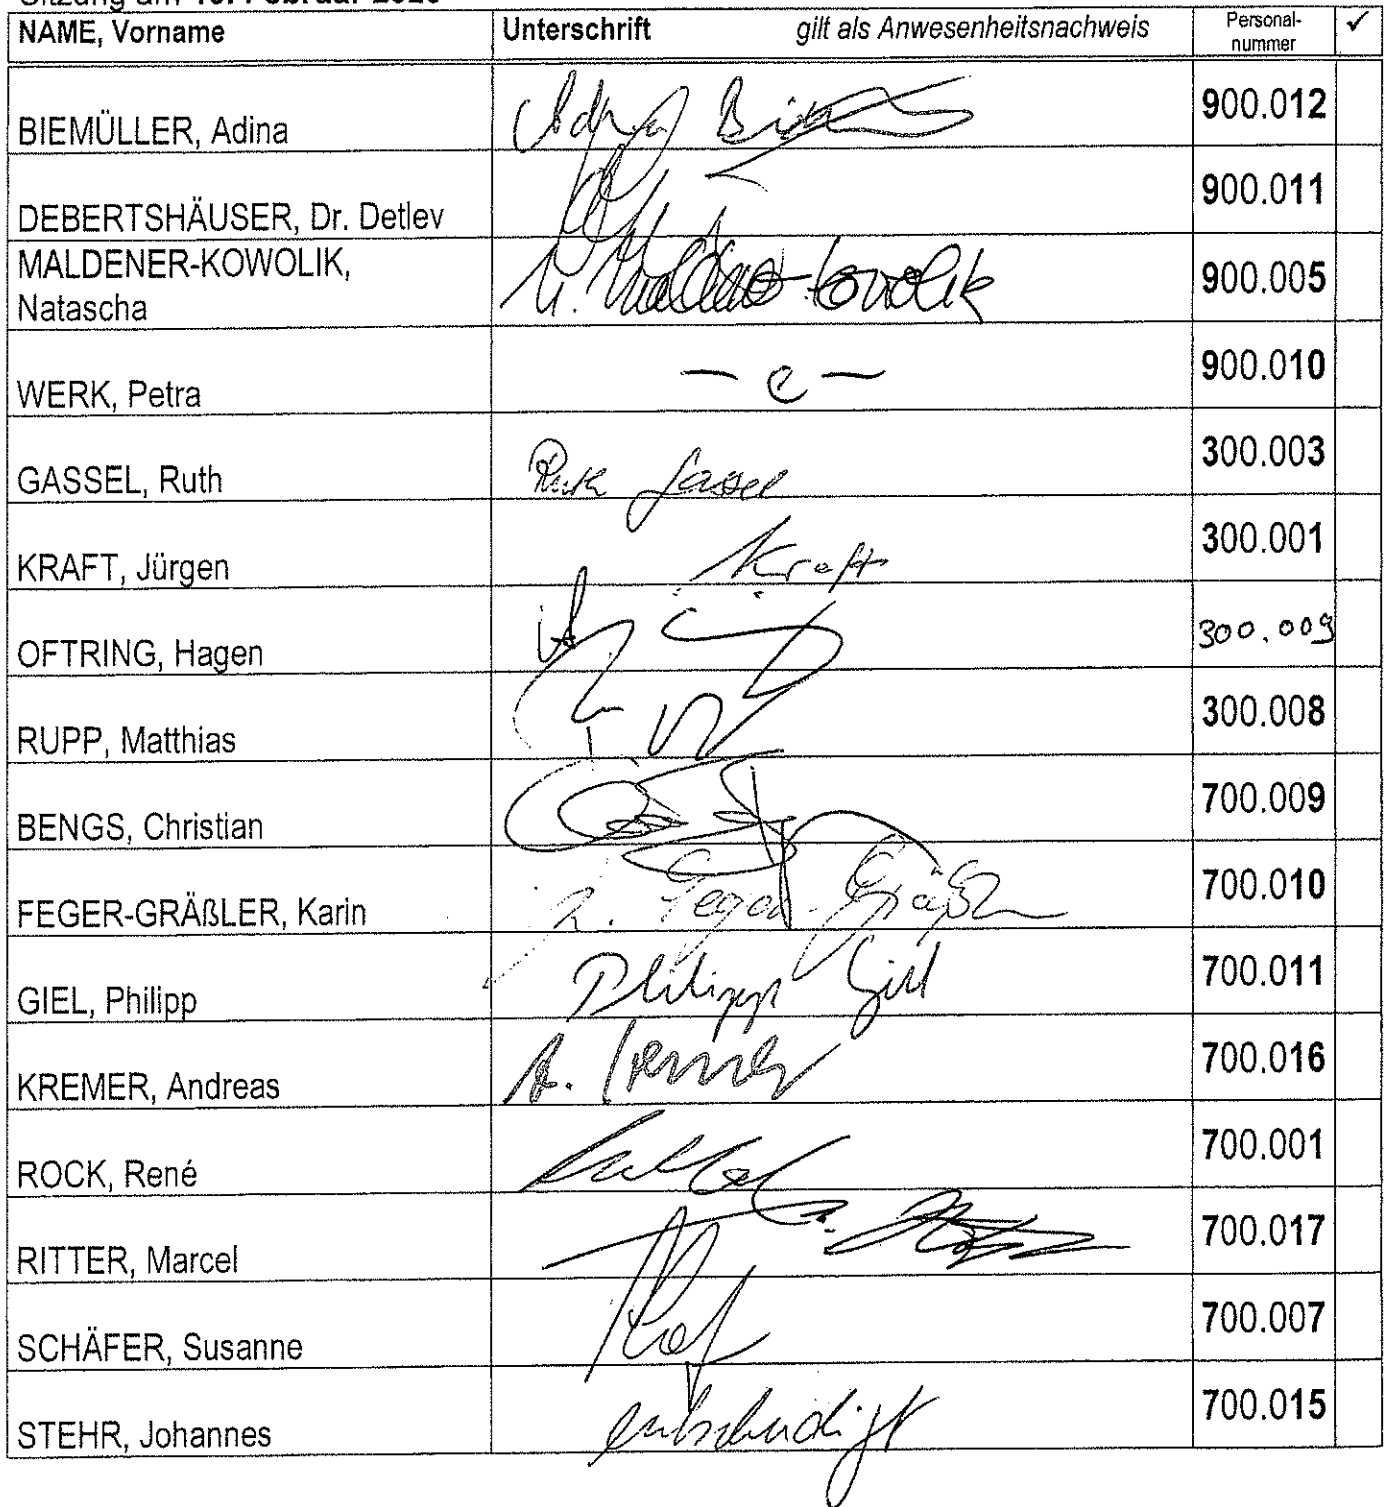 NAME, Vorname Unterschrift gilt als Anwesenheitsnachweis Personal-nummer ✓
BIEMÜLLER, Adina 900.012
DEBERTSHÄUSER, Dr. Detlev 900.011
MALDENER-KOWOLIK,
Natascha N. Maldener-Kowolik 900.005
WERK, Petra – e – 900.010
GASSEL, Ruth Ruth Gassel 300.003
KRAFT, Jürgen Kraft 300.001
OFTRING, Hagen 300.009
RUPP, Matthias 300.008
BENGS, Christian 700.009
FEGER-GRÄßLER, Karin 700.010
GIEL, Philipp Philipp Giel 700.011
KREMER, Andreas A. Kremer 700.016
ROCK, René 700.001
RITTER, Marcel 700.017
SCHÄFER, Susanne 700.007
STEHR, Johannes entschuldigt 700.015